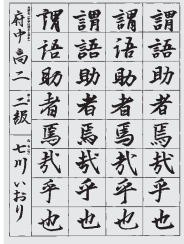 謂語助者焉哉乎也
謂語助者焉哉乎也
謂語助者焉哉乎也
謂語助者焉哉乎也
府中高二 二級 七川いおり